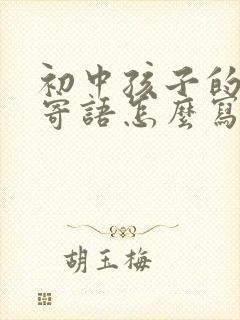 初中孩子的
寄語怎麼寫
胡玉梅